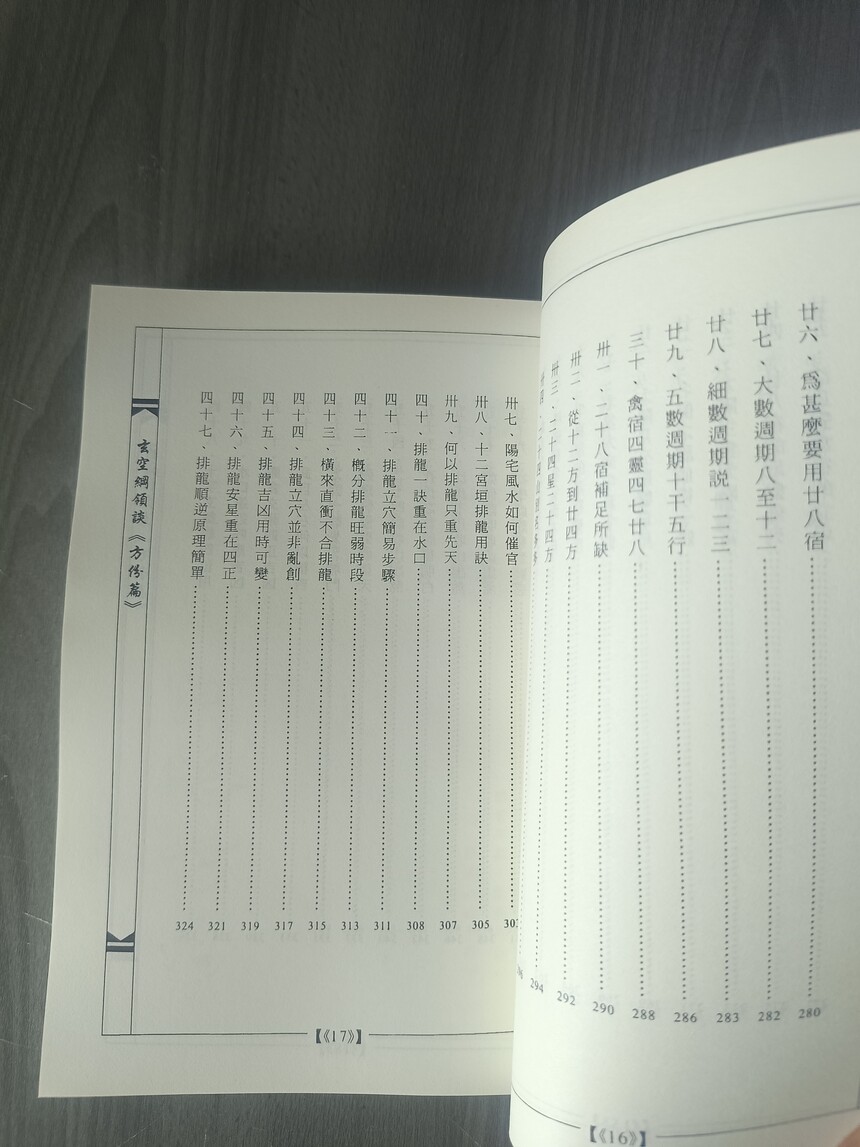 廿六、爲甚麼要用廿八宿……280
廿七、大數週期八至十二……282
廿八、細數週期説一二三……283
廿九、五數週期十干五行……286
三十、禽宿四靈四七廿八……288
卅一、二十八宿補足所缺……290
卅二、從十二方到廿四方……292
卅三、二十四星二十四方……294
【《16》】
卅七、陽宅風水如何催官……303
卅八、十二宮垣排龍用訣……305
卅九、何以排龍只重先天……307
四十、排龍一訣重在水口……308
四十一、排龍立穴簡易步驟……311
四十二、概分排龍旺弱時段……313
四十三、橫來直衝不合排龍……315
四十四、排龍立穴並非亂創……317
四十五、排龍吉凶用時可變……319
四十六、排龍安星重在四正……321
四十七、排龍順逆原理簡單……324
玄空綱領談《方份篇》
【《17》】